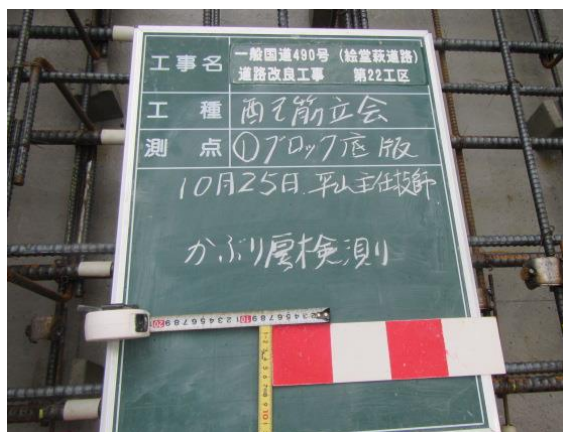 工事名
一般国道490号 (絵堂萩道路)
道路改良工事 第22工区
工種 配筋立会
測点 ①ブロック底版
10月25日 平山主任技師
かぶり厚検測